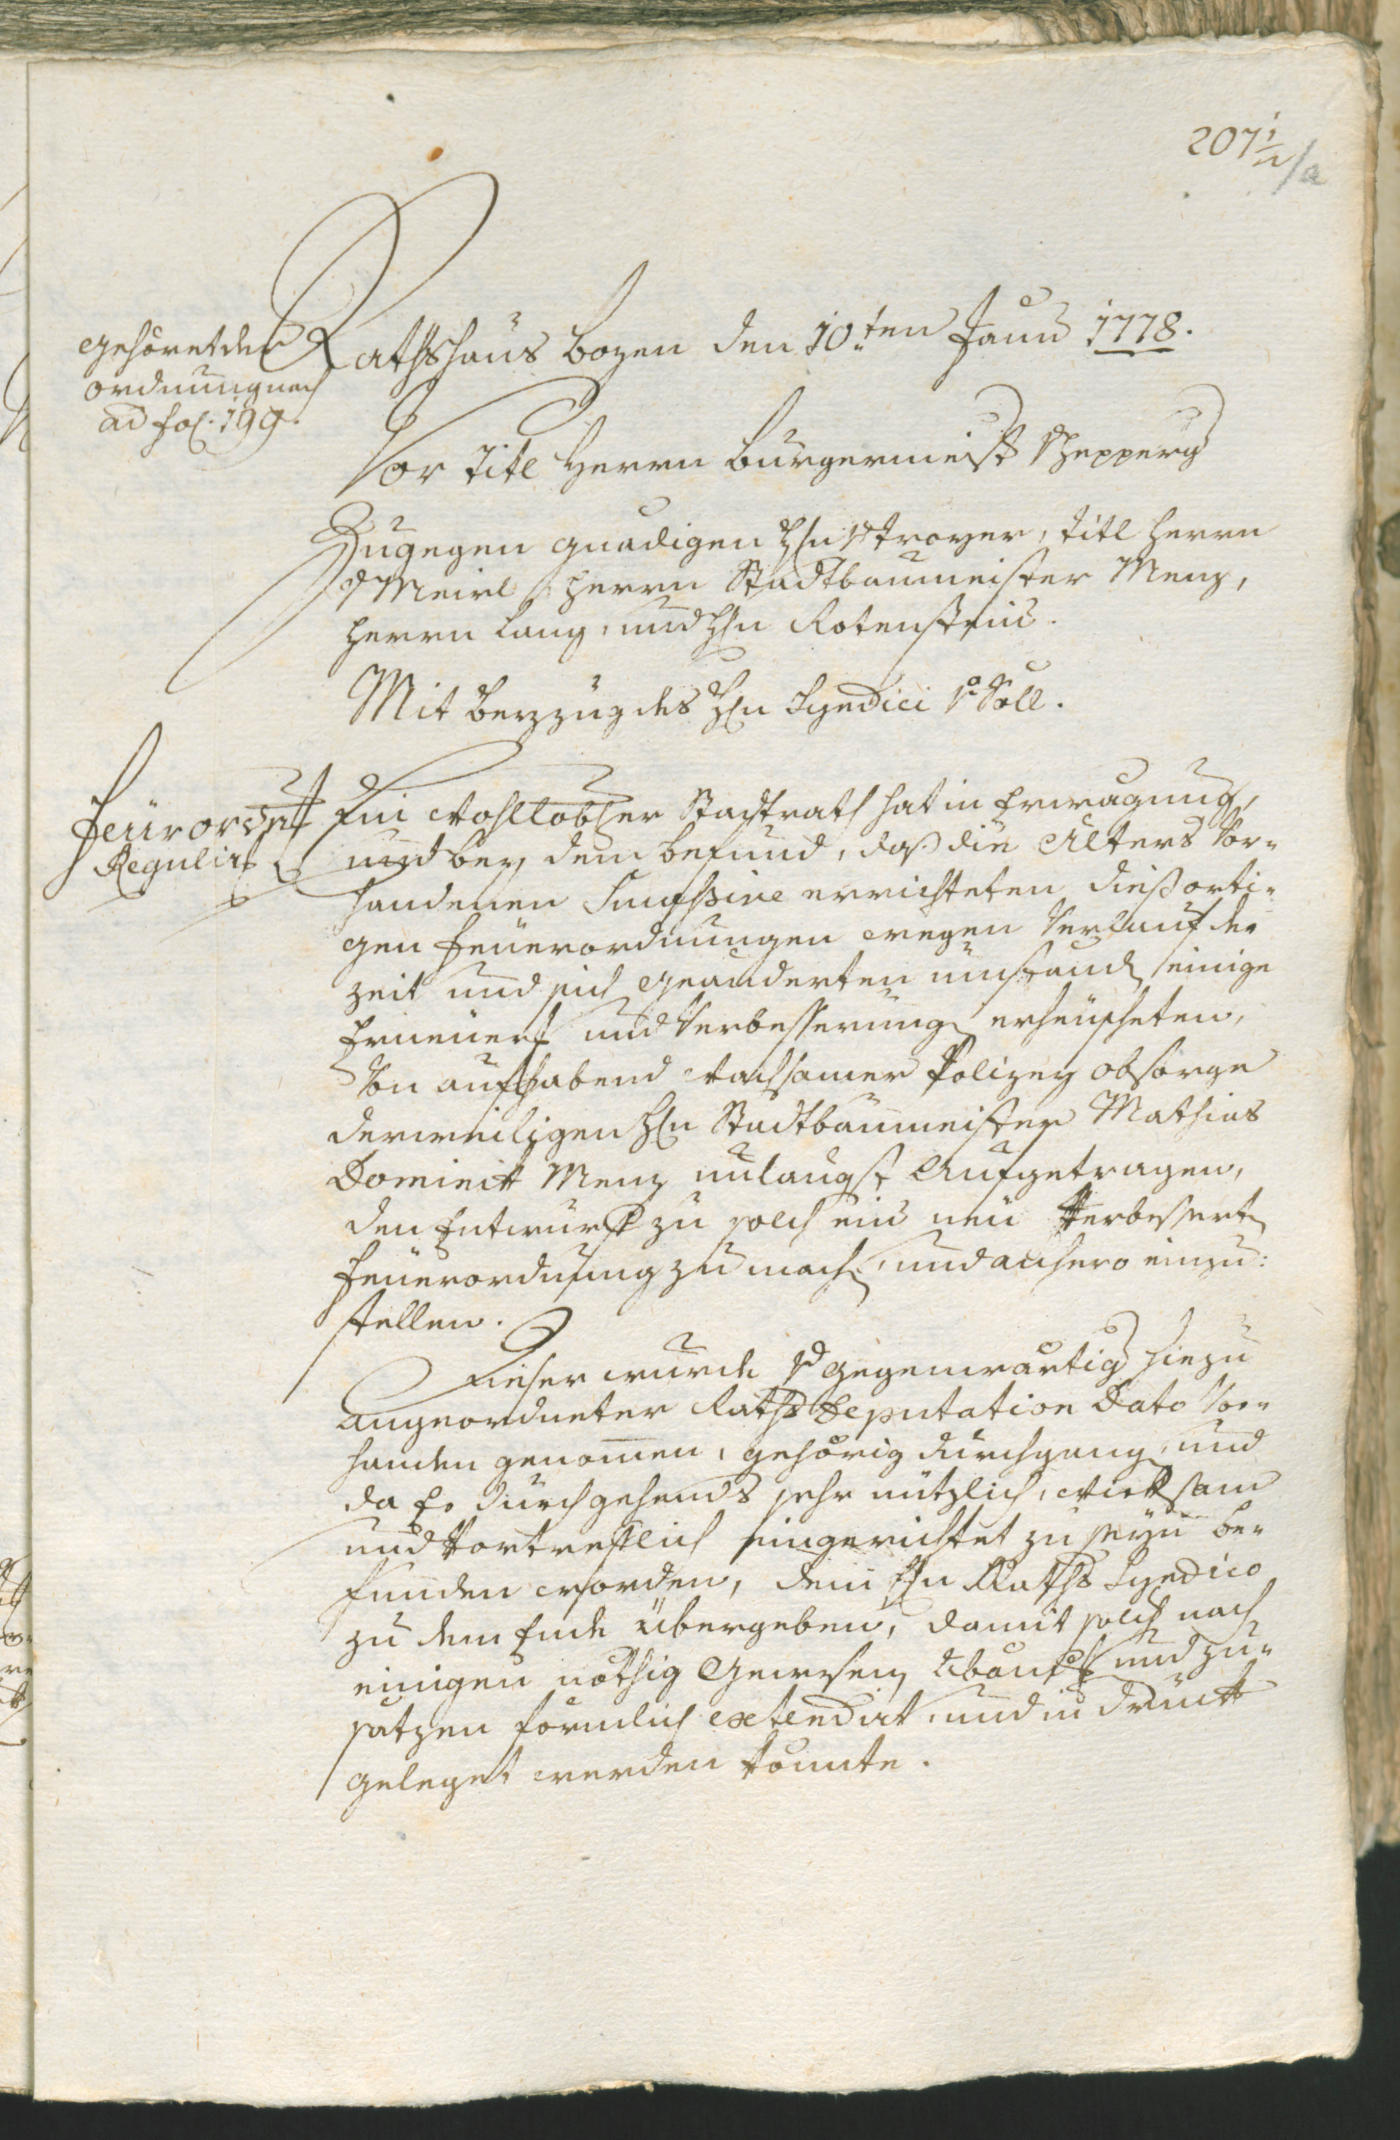 207 1/2 /a
Gehöret der
ordnung nach
ad fol. 199.
Rathshaus Bozen den 10.ten Jann 1778.
Vor Titl Herrn Burgermeist v Hepperg
Zugegen gnädigen H/n v Troyer, Titl Herrn
v Meirl Herrn Stadtbaumeister Menz,
Herrn Lang, und H/n Rotenstein.
Mit Beyzug des H/n Syndici v Söll.
Feürordn
Regulir
Ein Wohllobl/er Stadtrath hat in Erwägung,
und bey dem Befund, daß die Alters Vor-
handenen errichteten dießorti-
gen Feuerordnungen wegen Verlauf der
Zeit und sich geänderten umständ einige
Erneuer und Verbesserung erheischeten,
Von aufhabend Wachsamer Polizey obsorge
derweiligen H/n Stadtbaumeister Mathias
Dominik Menz unlängst Aufgetragen,
den Entwurf zu solch ein neü Verbessert
Feuerordnung zu mach, und anhero einzu:
stellen.
Dieser wurde gegenwärtig hiezu
angeordneter Raths Deputation Dato Vor-
handen genommen, gehörig durchgang, und
da Er durchgehends sehr nützlich, Wirksam
und Vortreflich eingerichtet zu seyn be-
funden worden, dem H/n Raths Syndico
zu dem Ende übergeben, damit solch nach
einigen nöthig Gewesen und Zu-
satzen förmlich extendirt, und in Druck
geleget werden könnte.